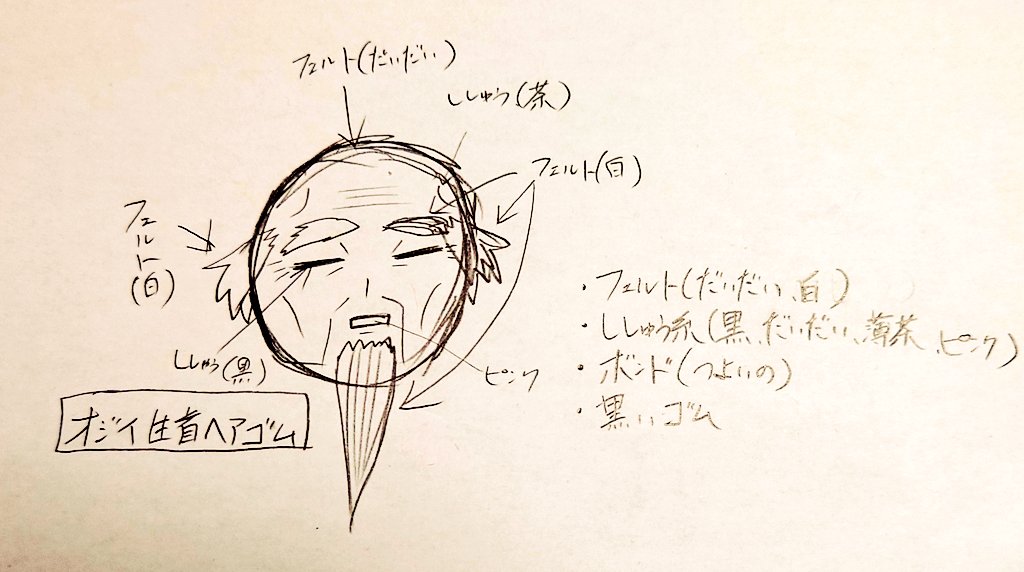 フェルト(だいだい)
ししゅう(茶)
フェルト(白)
フェルト(白)
ししゅう(黒)
ピンク
オジイ生首ヘアゴム
・フェルト(だいだい、白)
・ししゅう糸(黒、だいだい、薄茶、ピンク)
・ボンド(つよいの)
・黒いゴム